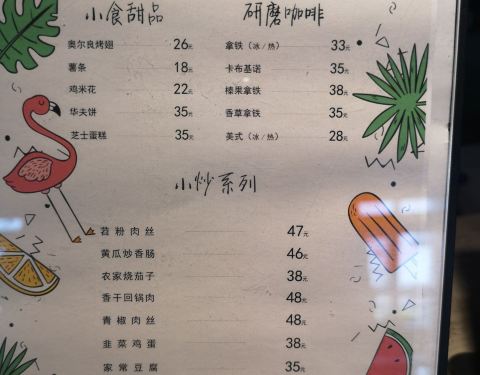 小食甜品
奥尔良烤翅 26元
薯条 18元
鸡米花 22元
华夫饼 35元
芝士蛋糕 35元
研磨咖啡
拿铁（冰／热） 33元
卡布基诺 35元
榛果拿铁 38元
香草拿铁 35元
美式（冰／热） 28元
小炒系列
苕粉肉丝 47元
黄瓜炒香肠 46元
农家烧茄子 38元
香干回锅肉 48元
青椒肉丝 48元
韭菜鸡蛋 38元
家常豆腐 35元